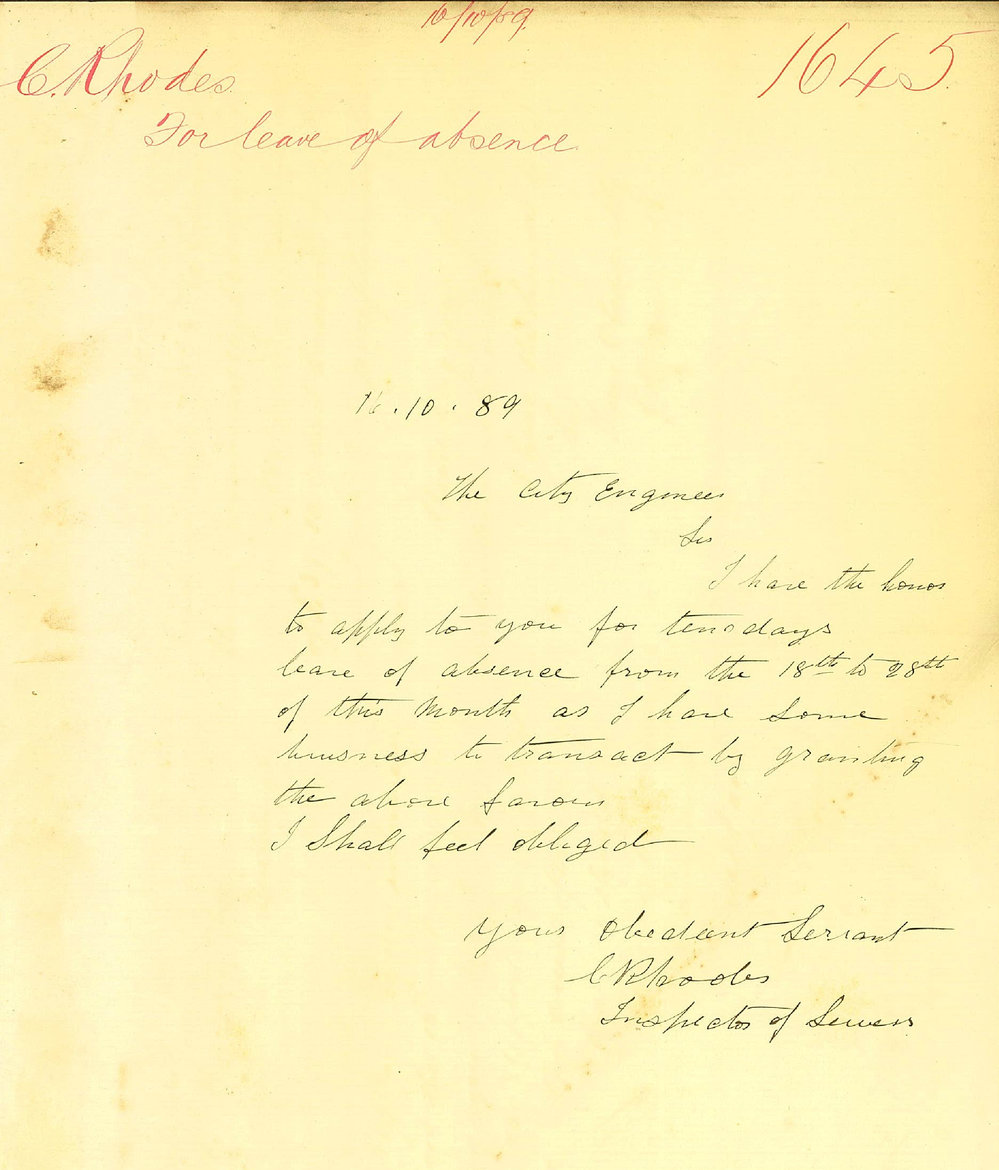 16/10/89
C. Rhodes. 1645
For leave of absence.
16.10.89
The City Engineer
Sir
I have the honor
to apply to you for ten days
leave of absence from the 18th to 28th
of this Month as I have Some
buisness to transact by granting
the above favour
I Shall feel obliged
Yours Obedient Servant
C Rhodes
Inspector of Sewers